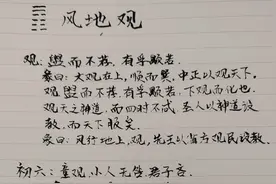 风地观
观：盥而不荐，有孚颙若。
彖曰：大观在上，顺而巽，中正以观天下。
观盥而不荐，有孚颙若，下观而化也。
观天之神道，而四时不忒，圣人以神道设
教，而天下服矣。
象曰：风行地上，观，先王以省方观民设教。
初六：童观，小人无咎，君子吝。